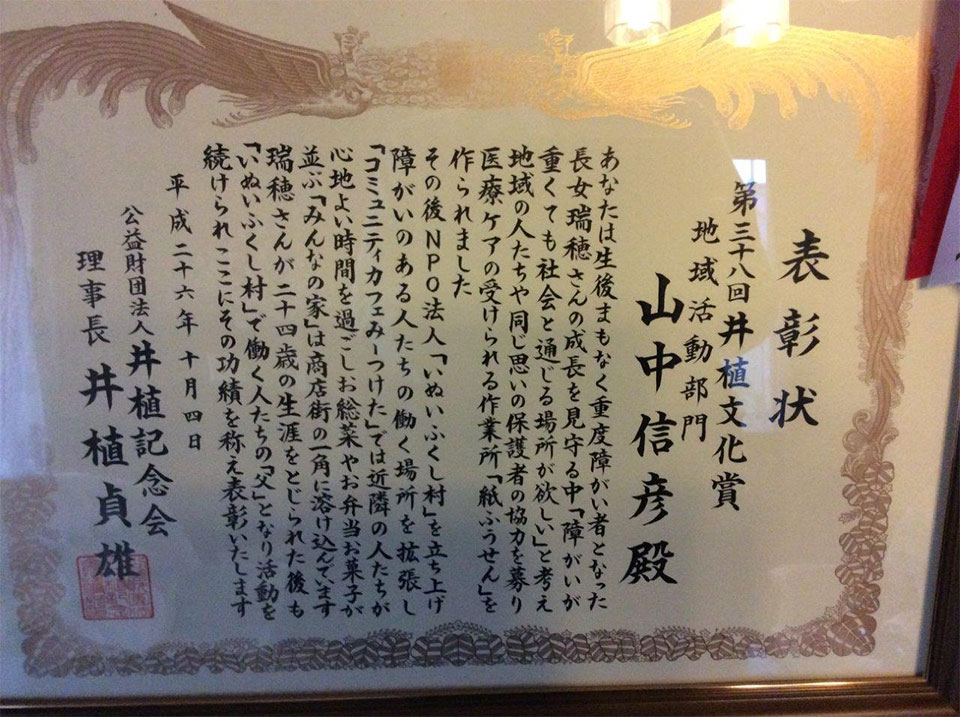 表彰状
第三十八回井植文化賞
地域活動部門
山中信彦殿
あなたは生後まもなく重度障がい者となった
長女瑞穂さんの成長を見守る中「障がいが
重くても社会と通じる場所が欲しい」と考え
地域の人たちや同じ思いの保護者の協力を募り
医療ケアの受けられる作業所「紙ふうせん」を
作られました
その後NPO法人「いぬいふくし村」を立ち上げ
障がいのある人たちの働く場所を拡張し
「コミュニティカフェみーつけた」では近隣の人たちが
心地よい時間を過ごしお総菜やお弁当お菓子が
並ぶ「みんなの家」は商店街の一角に溶け込んでいます
瑞穂さんが二十四歳の生涯をとじられた後も
「いぬいふくし村」で働く人たちの「父」となり活動を
続けられここにその功績を称え表彰いたします
平成二十六年十月四日
公益財団法人井植記念会
理事長井植貞雄